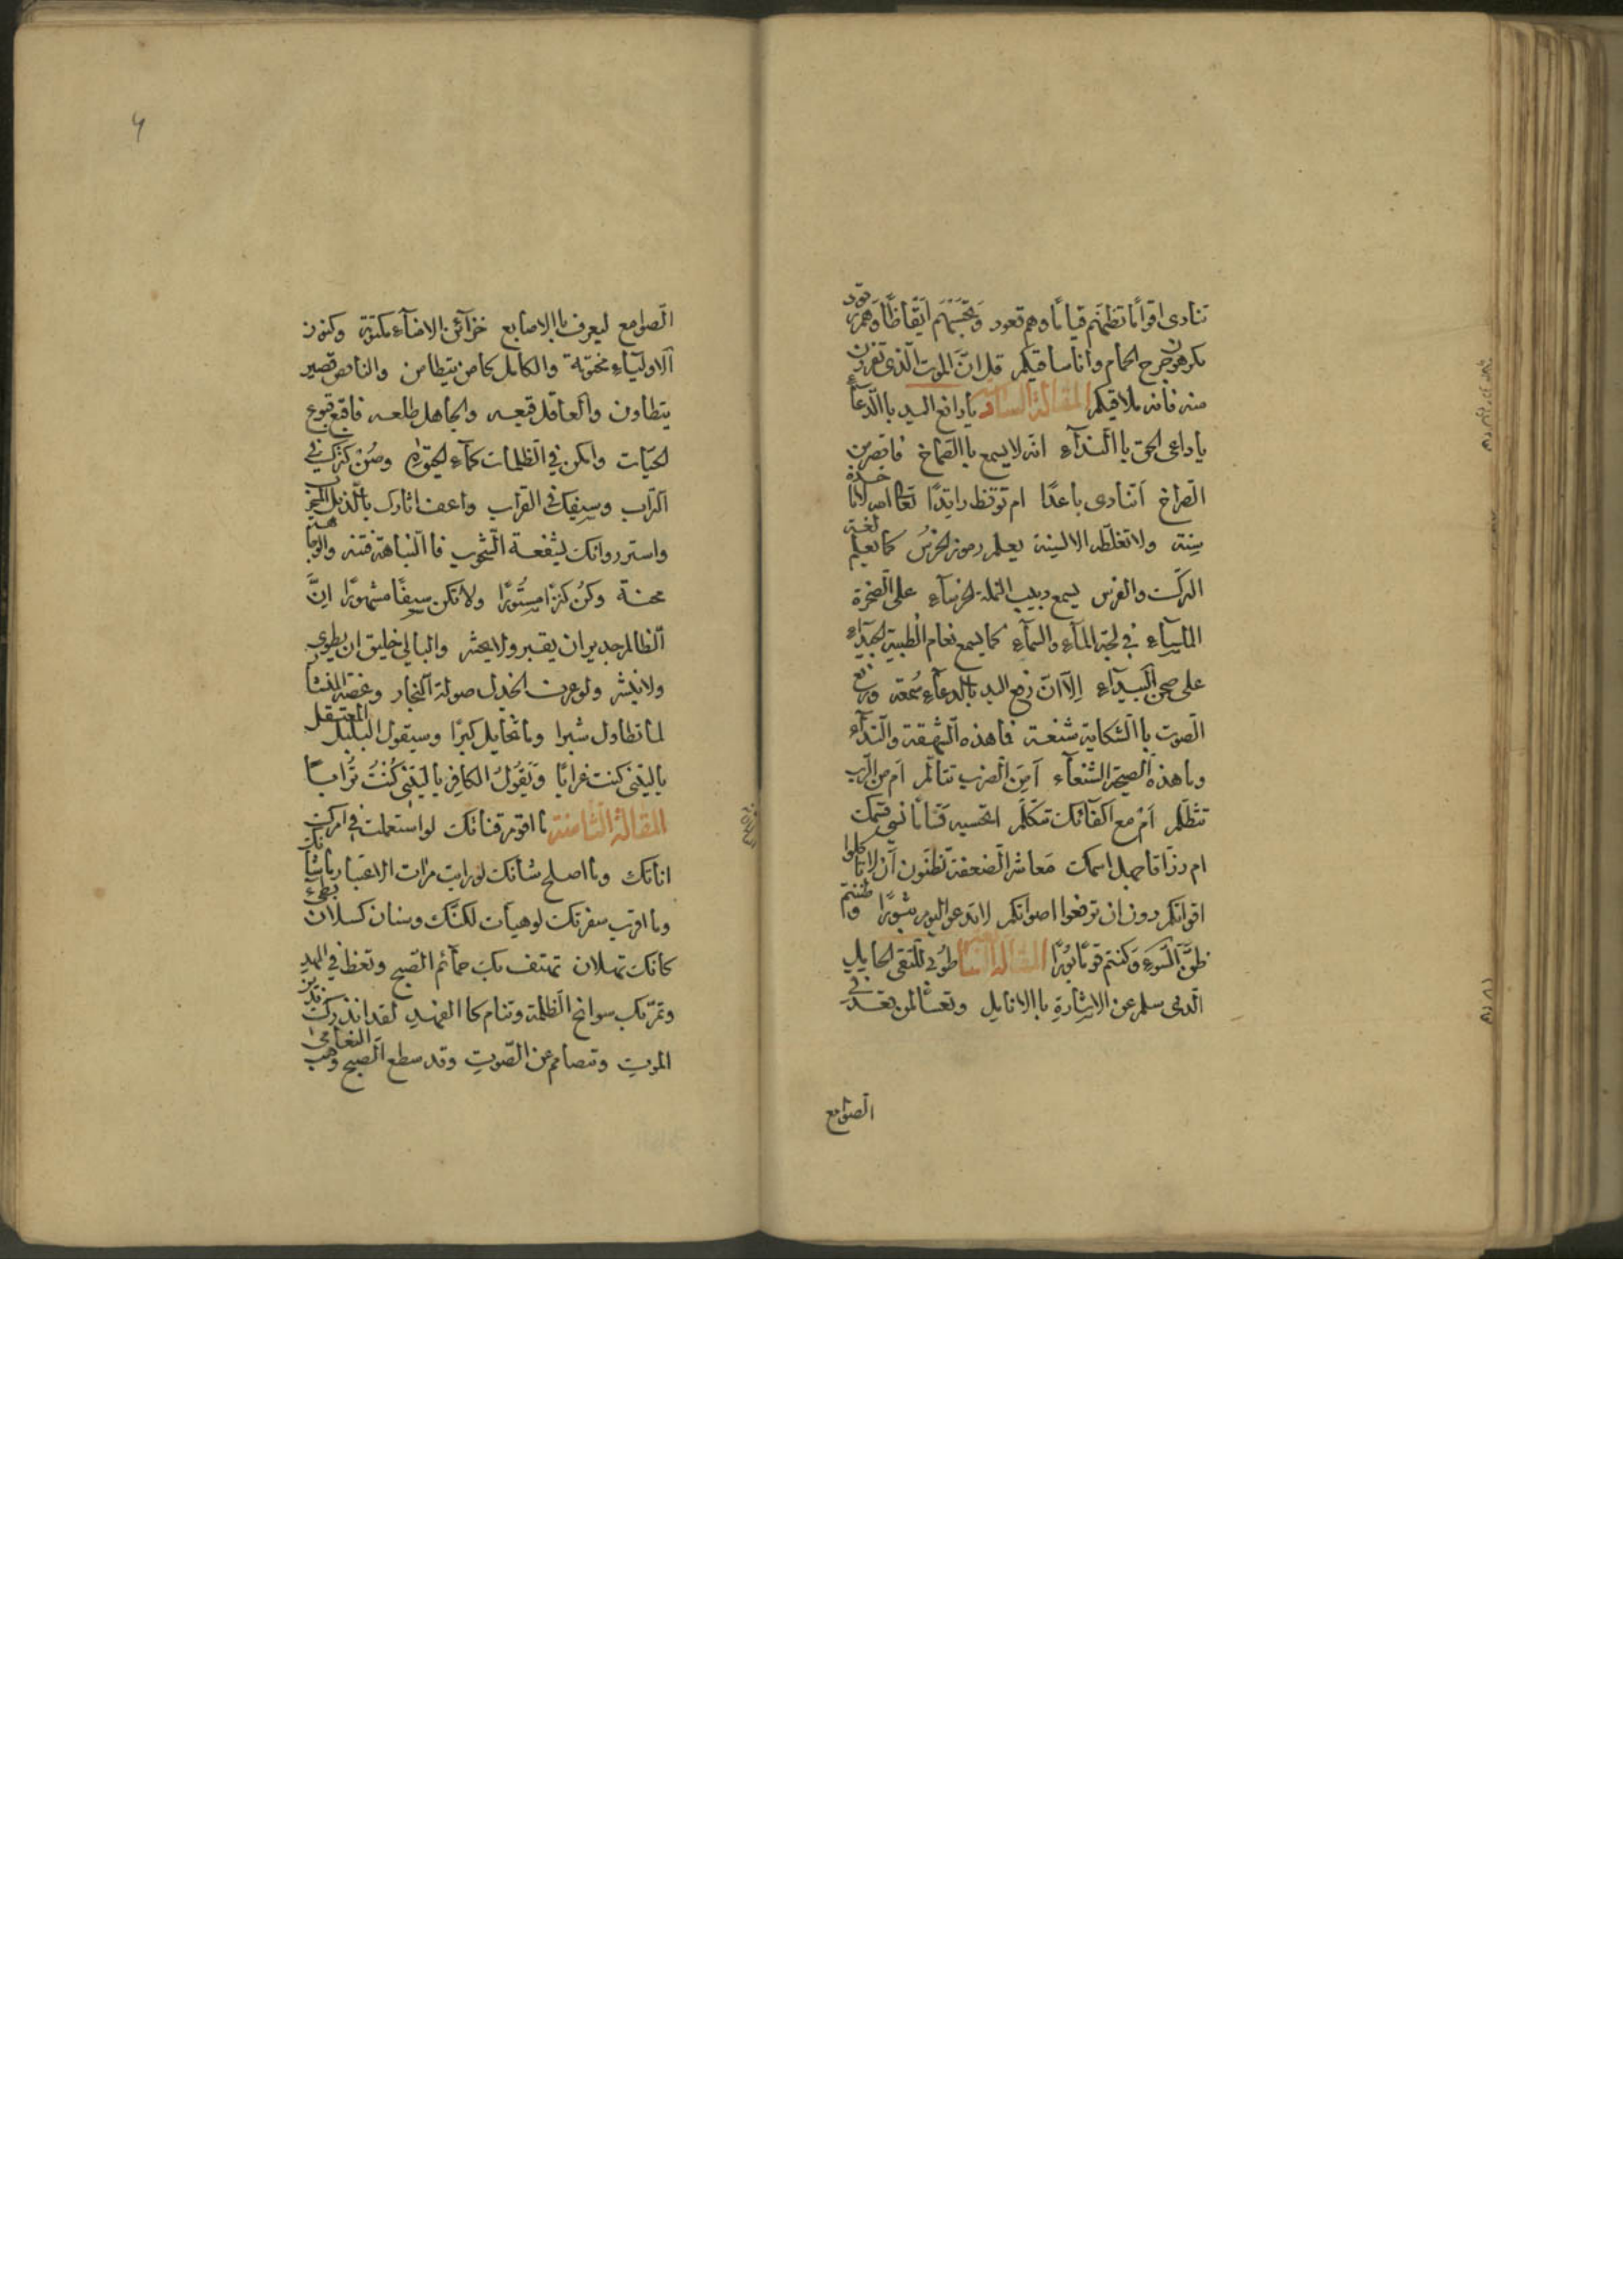 تنادى اقواما تظنهم قياما وهم قعود وَتَحْسَبُهُمْ اَيْقَاظًا وَهُمْ رقود
تكرهون جرح الحمام وانا ساقيكم قل انَّ الموت الّذى تفرون
منه فانه ملاقيكم المقالة السادسة يا رافع اليد باالدّعآء
يا داعى الحق باالنّدآء انه لا يسمع باالصّماخ فاقصر من
الصّراخ اتنادى باعدًا ام توقظ راقدًا تعالى الله لا تاخذه
سِنة ولا تغلّطه الالسِنة يعلم رموز الخرس كما يعلم لغة
الترك والفرس يسمع دبيب النملة الخرسآء على الصّخرة
الملسآء فى لجة المآء والسمآء كما يسمع نغام الظبية الجيدآء
على صحن البيدآء اِلاّ انّ رفع اليد باالدعآء سُمعة ورفع
الصّوت باالشكاية شنعة فما هذه الشّهقة والنّدآء
وما هذه الصيحة الشنعآء اَمِنَ الضرب تتألّم ام من الرّب
تتظلّم اَمْ مع اكفآئك تتكلّم اتحسبه قسّاما نسى قسمك
ام رزّاقا جهل اسمك معاشر الضعفة تظنّون ان لا تاكلوا
اقواتكم دون ان ترفعوا اصواتكم لا تدعوا اليوم ثبورًا وظننتم
ظنَّ السّوءِ وكنتم قومًا بُورًا المقالة السابعة طوبى للتقى الخامل
الّذى سلم عن الاشارة باالانامل وتعسًا لمن قعد فى
الصّوامع
الصّوامع ليعرف باالاصابع خزآئن الامنآء مكتومة وكنوز
الاوليآء مختومة والكامل كامن يتطامن والناقص قصير
يتطاول والعاقل قبعه والجاهل طلعه فاقبع قبوع
الحيّات واكمن فى الظلمات كمآء الحيوة وصُن كنزك فى
التراب وسيفك فى القراب واعف آثارك باالذيل المسحوب
واستر روائك بسُفعة الشّحوب فاالنّباهة فتنة والوجاهة
محنة وكُن كنزًا مستُورًا ولا تكن سيفًا مشهورًا انَّ
الظالم جدير ان يقبر ولا يحشر والبالى خليق ان يطوى
ولا ينشر ولو عرف الجذل صولة النّجار وعضة المنشار
لما تطاول شبرا وما تخايل كبرًا وسيقول البلبل المعتقل
ياليتنى كنت غرابًا وَيَقُولُ الكافر يا لَيْتَنِى كُنْتُ تُرابًا
المقالة الثامنة ما اقوم قناتك لو استعملت فى امرك
اناتك وما اصلح شأنك لو رايت مرآت الاعتبار ما شانك
وما اقرب سفرتك لو هيأت لكنّك وسنان كسلان بطىء
كانك ثهلان تهتف بك حمآئم الصّبح وتغط فى المهد
وتمرّ بك سوانح الظلمة وتنام كاالفهد لقد انذرك نذير
الموت وتصامم عن الصّوت وقد سطع الصبح وهب النعامى